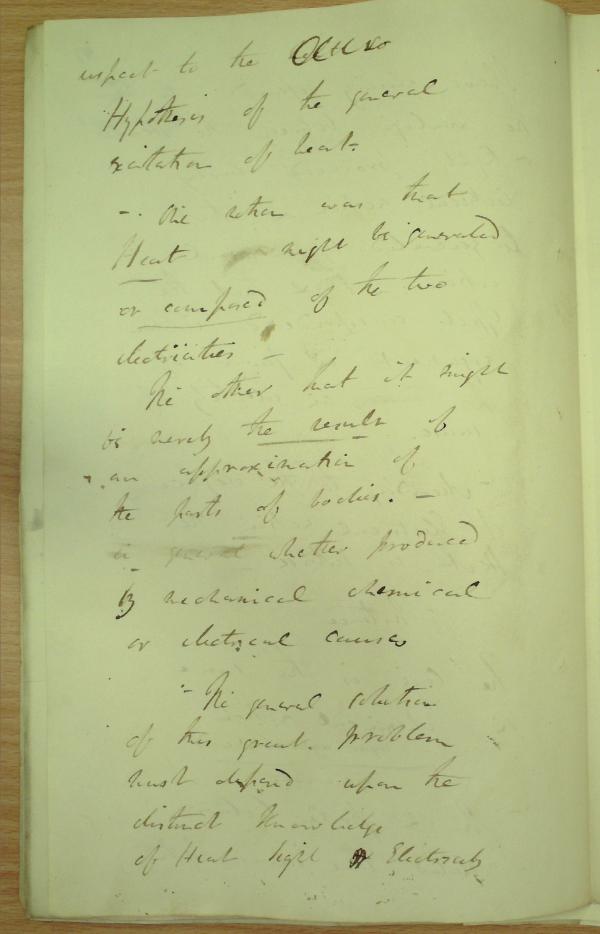 respect to the
Hypothesis of the general
excitation of heat.
-. One notion was that
Heat might be generated
or composed of the two
electricities -
The other that it might
be merely the result of
an approximation of
the parts of bodies. -
in general whether produced
by mechanical chemical
or electrical causes
- The general solution
of this great problem
must depend upon the
distinct knowledge
of Heat Light & Electricity